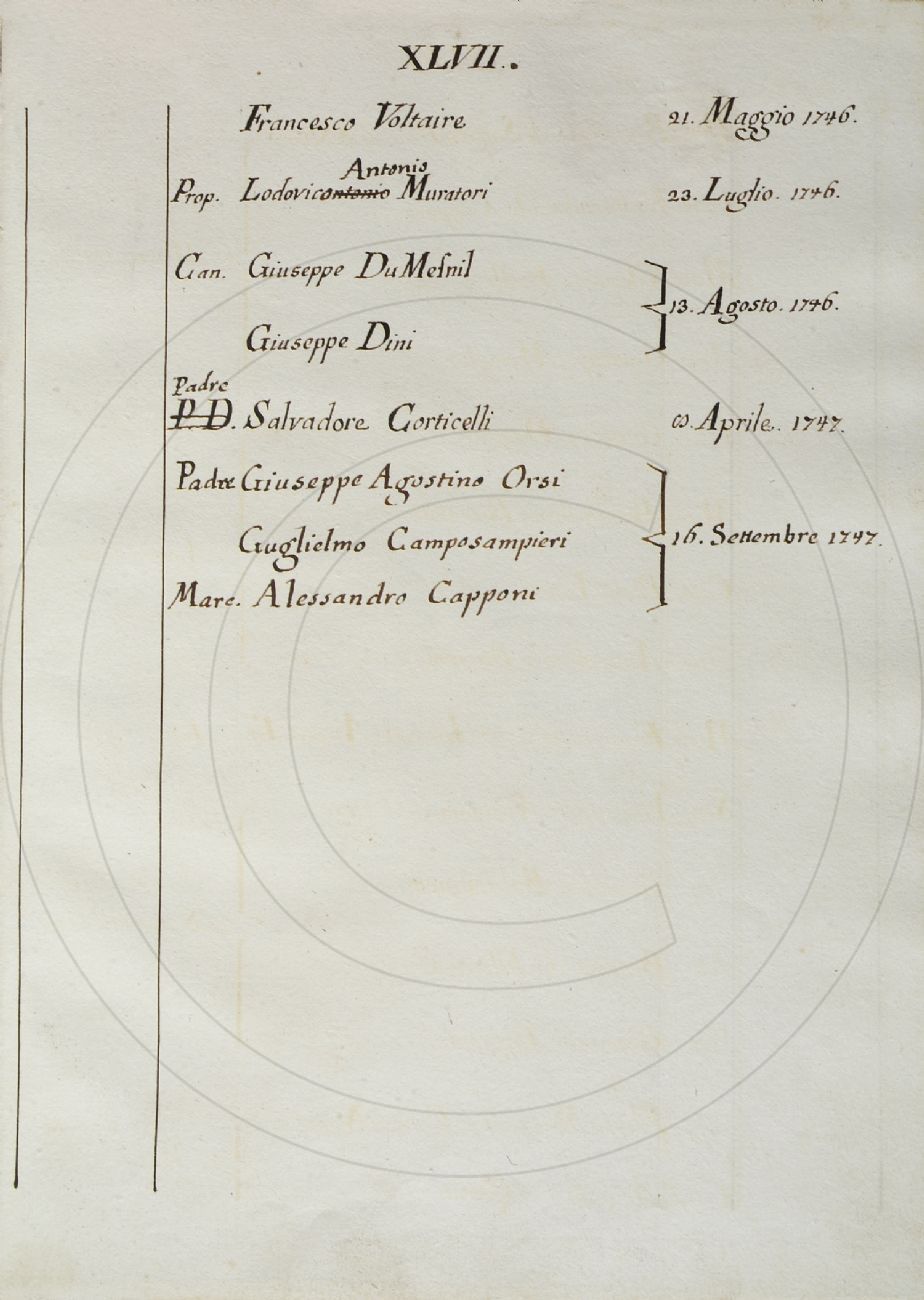 XLVII.
Francesco Voltaire 21. Maggio 1746.
Antonio
Prop. Lodovicontonio Muratori 23. Luglio. 1746.
Can. Giuseppe Du Mesnil
13. Agosto. 1746.
Giuseppe Dini
Padre
P. D. Salvadore Corticelli Aprile. 1747.
Padre Giuseppe Agostino Orsi
Guglielmo Camposampieri 16. Settembre 1747.
Marc. Alessandro Capponi